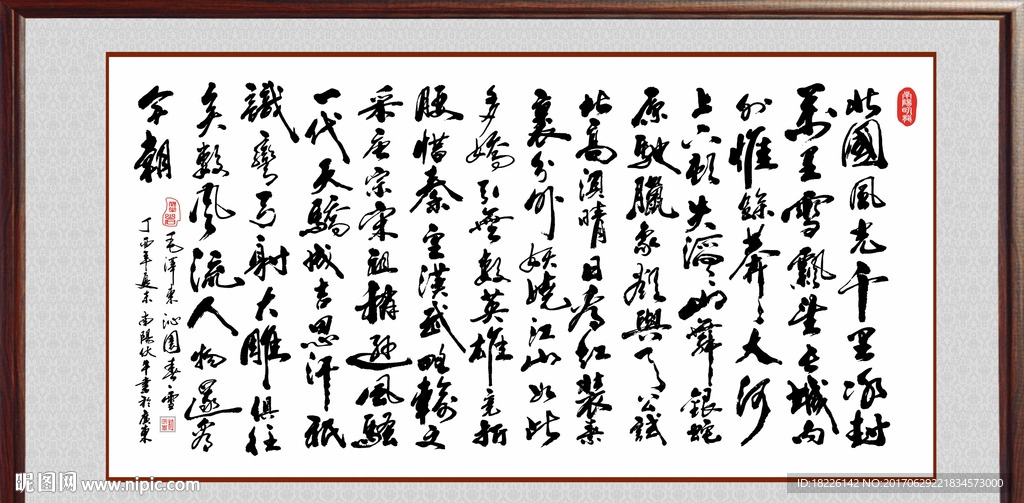 北國風光千里冰封
萬里雪飄望長城內
外惟餘莽莽大河
上下頓失滔滔山舞銀蛇
原馳臘象欲與天公試
比高須晴日看紅裝素
裹分外妖嬈江山如此
多嬌引無數英雄竞折
腰惜秦皇漢武略輸文
采唐宗宋祖稍遜風騷
一代天驕成吉思汗祇
識彎弓射大雕俱往
矣數風流人物還看
今朝
毛澤東沁園春雪
丁酉年夏末南陽伏牛書於廣東
昵图网 www.nipic.com
ID:18226142 NO:20170629221834573000